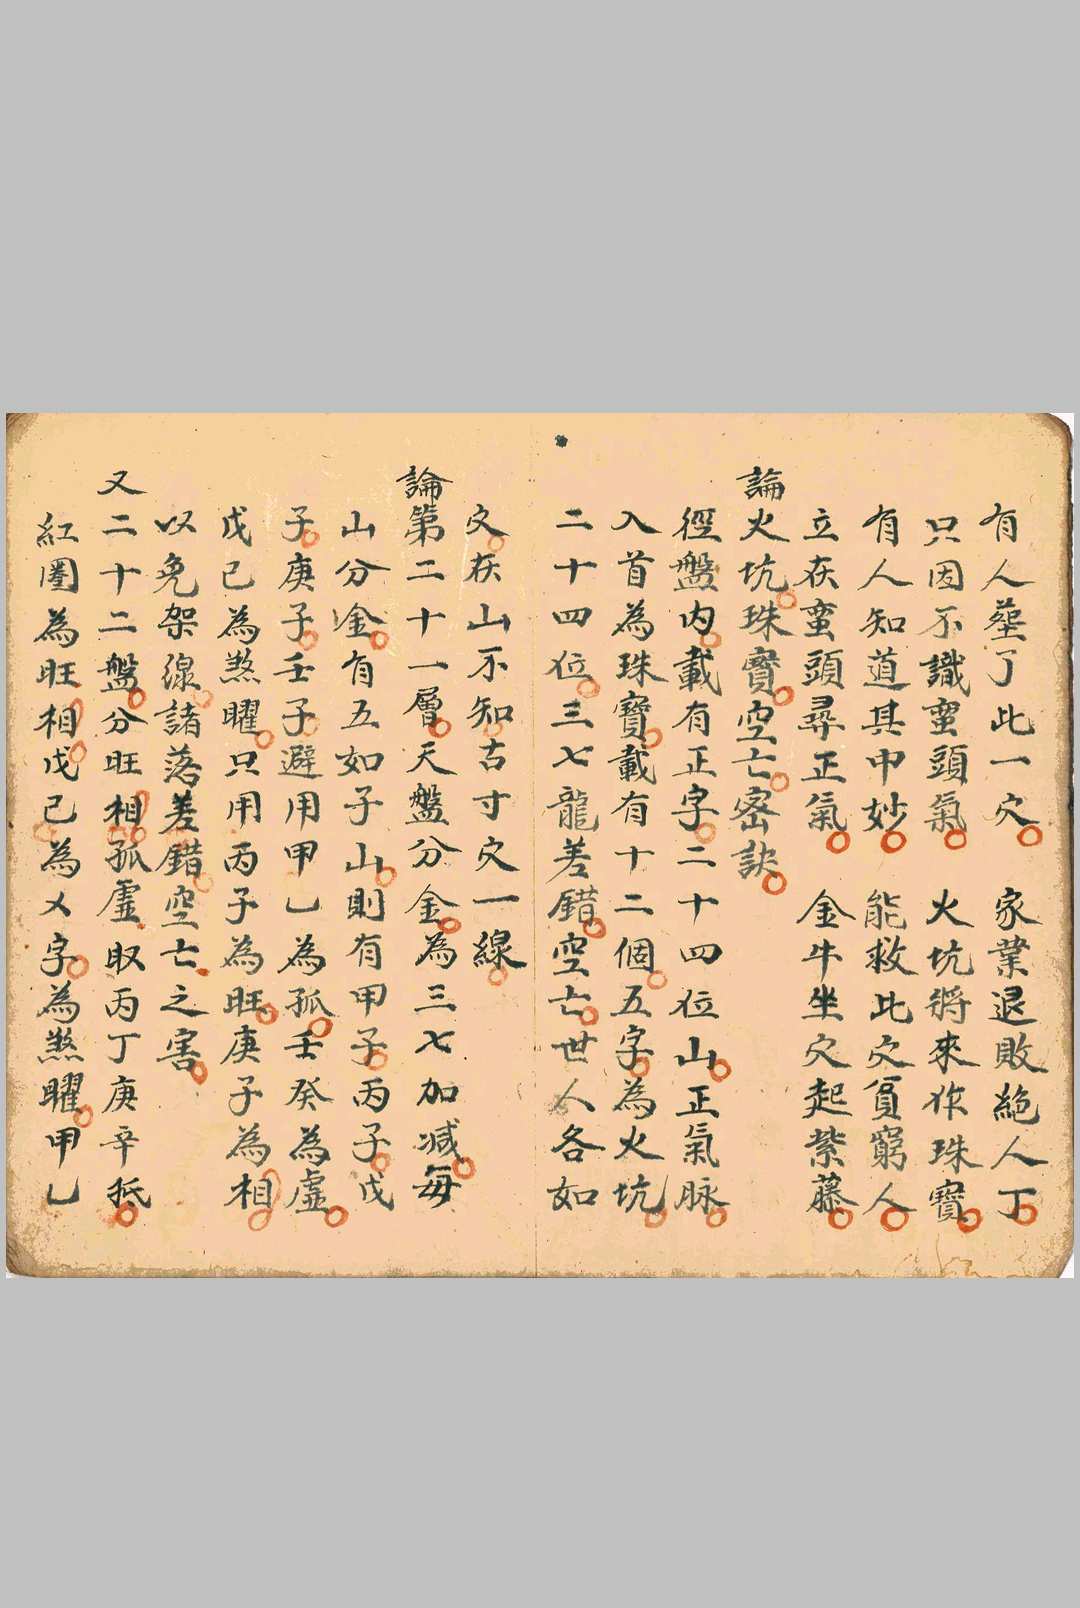 有人塟了此一穴　家業退敗絶人丁
只因不識蛮頭氣　火坑將來作珠寶
有人知道其中妙　能救此穴貟窮人
立在蛮頭尋正氣　金牛坐穴起紫藤
論火坑珠寶空亡宻訣
徑盤内載有正字二十四位山正氣脉
入首為珠寶載有十二個五字為火坑
二十四位三七龍差錯空亡世人各如
穴在山不知古寸穴一線
論第二十一層天盤分金為三七加减每
山分金有五如子山則有甲子丙子戊
子庚子壬子避用甲乙為孤壬癸為虛
戊己為煞曜只用丙子為旺庚子為相
以免架線諸落差錯空亡之害
又二十二盤分旺相孤虛取丙丁庚辛抵
紅圈為旺相戊己為乂字為煞曜甲乙